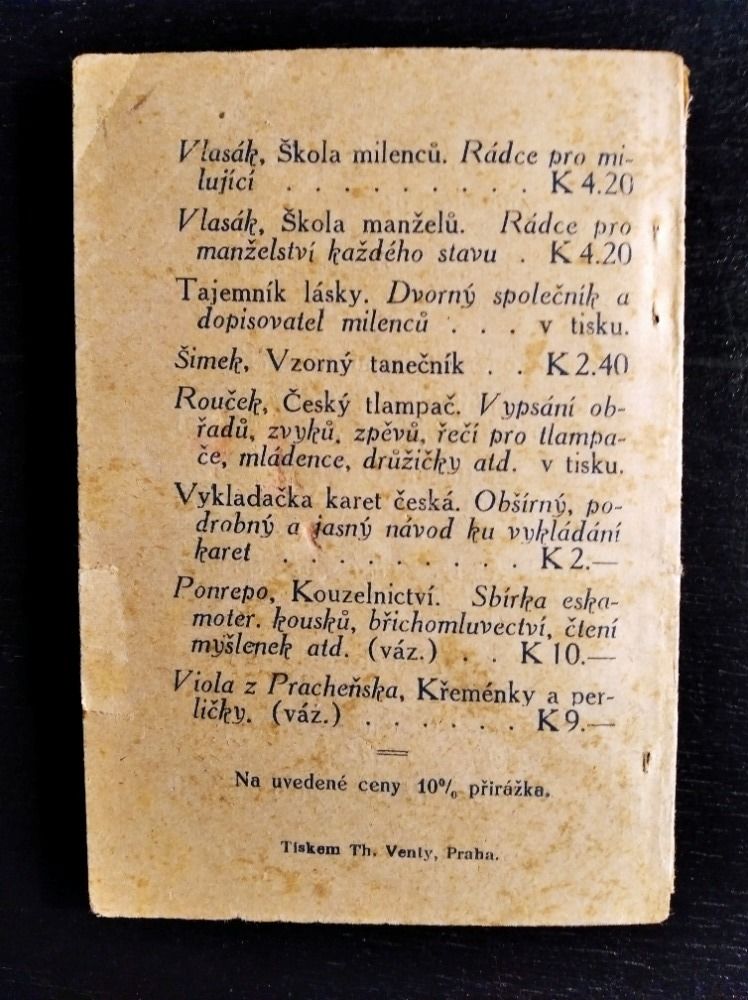 Vlasák, Škola milenců. Rádce pro mi-
lující . . . . . . . . . K 4.20
Vlasák, Škola manželů. Rádce pro
manželství každého stavu . K 4.20
Tajemník lásky. Dvorný společník a
dopisovatel milenců . . . v tisku.
Šimek, Vzorný tanečník . . K 2.40
Rouček, Český tlampač. Vypsání ob-
řadů, zvyků, zpěvů, řečí pro tlampa-
če, mládence, drůžičky atd. v tisku.
Vykladačka karet česká. Obšírný, po-
drobný a jasný návod ku vykládání
karet . . . . . . . . . K 2.—
Ponrepo, Kouzelnictví. Sbírka eska-
moter. kousků, břichomluvectví, čtení
myšlenek atd. (váz.) . . K 10.—
Viola z Pracheňska, Křeménky a per-
ličky. (váz.) . . . . . . K 9.—
Na uvedené ceny 10% přirážka.
Tiskem Th. Venty, Praha.